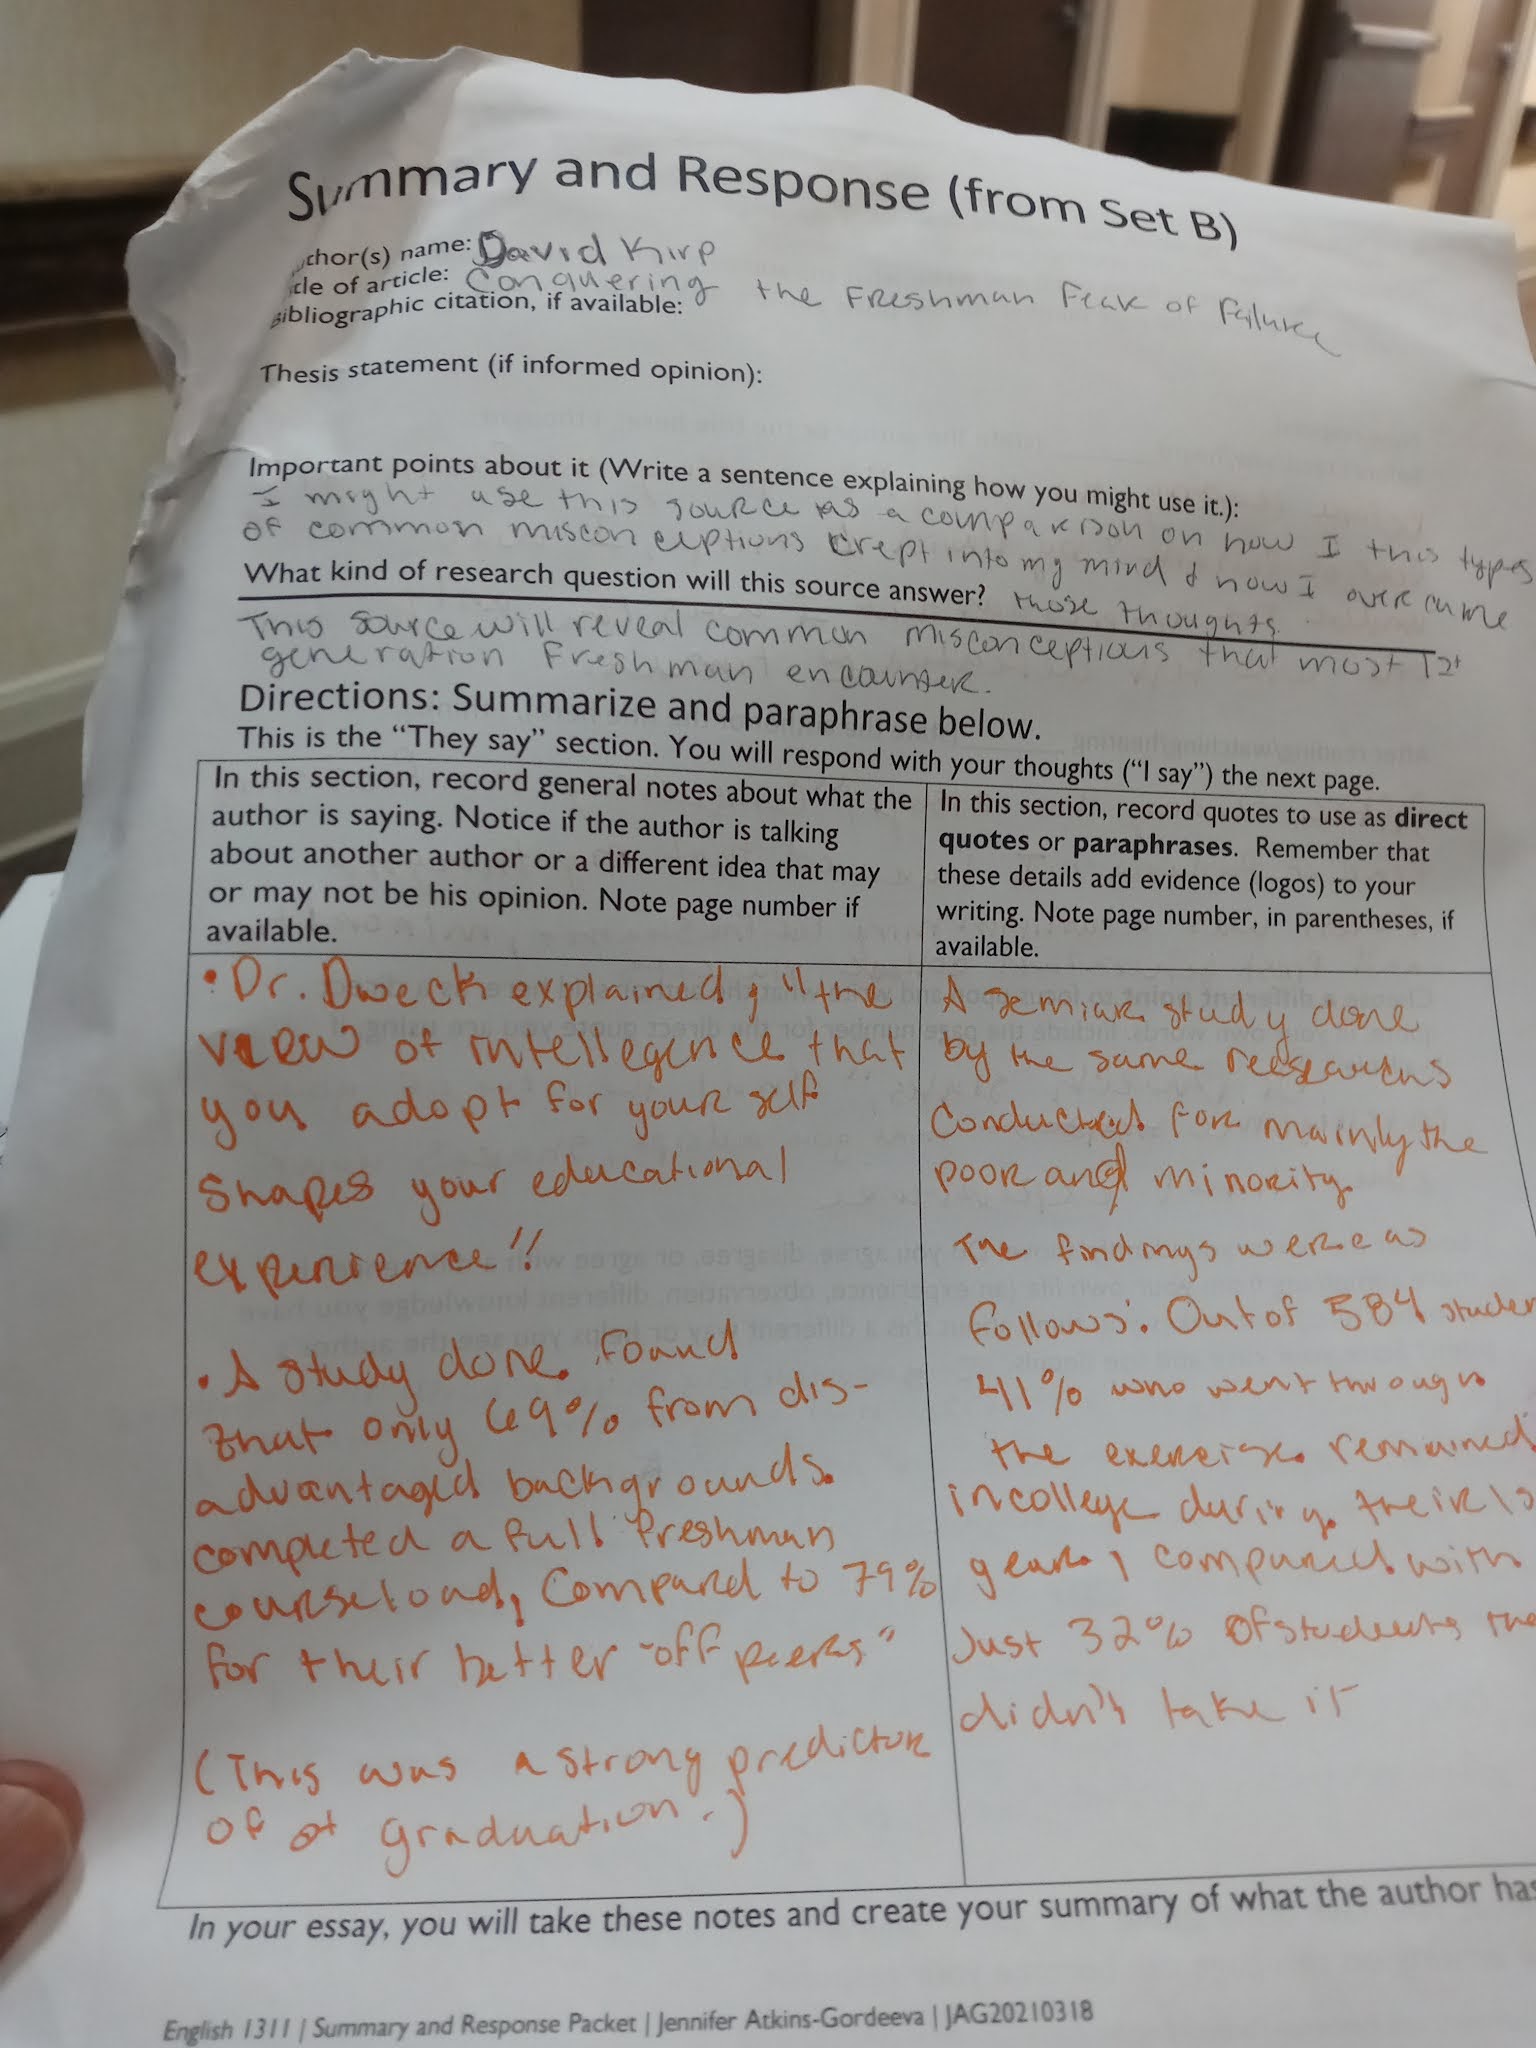 Summary and Response (from Set B)
thor(s) name: David Kirp
tle of article: Conquering the Freshman Fear of Failure
Bibliographic citation, if available:
Thesis statement (if informed opinion):
Important points about it (Write a sentence explaining how you might use it.):
I might use this source as a comparison on how I this types
of common misconceptions crept into my mind & how I overcame
What kind of research question will this source answer? those thoughts.
This source will reveal common misconceptions that most 1st
generation Freshman encounter.
Directions: Summarize and paraphrase below.
This is the “They say” section. You will respond with your thoughts (“I say”) the next page.
In this section, record general notes about what the
author is saying. Notice if the author is talking
about another author or a different idea that may
or may not be his opinion. Note page number if
available.
In this section, record quotes to use as direct
quotes or paraphrases. Remember that
these details add evidence (logos) to your
writing. Note page number, in parentheses, if
available.
• Dr. Dweck explained, "the
view of intellegence that
you adopt for your self
shapes your educational
experience"!
• A study done found
that only 69% from dis-
advantaged backgrounds
completed a full freshman
courseload, compared to 79%
for their better "off peers"
(This was a strong predictor
of graduation.)
A study done
by the same
conducted for mainly the
poor and minority.
The findings were as
follows: Out of 584 studen
41% who went through
the exercise remained
in college during their 1s
year, compared with
Just 32% of students tha
didn't take it
In your essay, you will take these notes and create your summary of what the author has
English 1311 | Summary and Response Packet | Jennifer Atkins-Gordeeva | JAG20210318